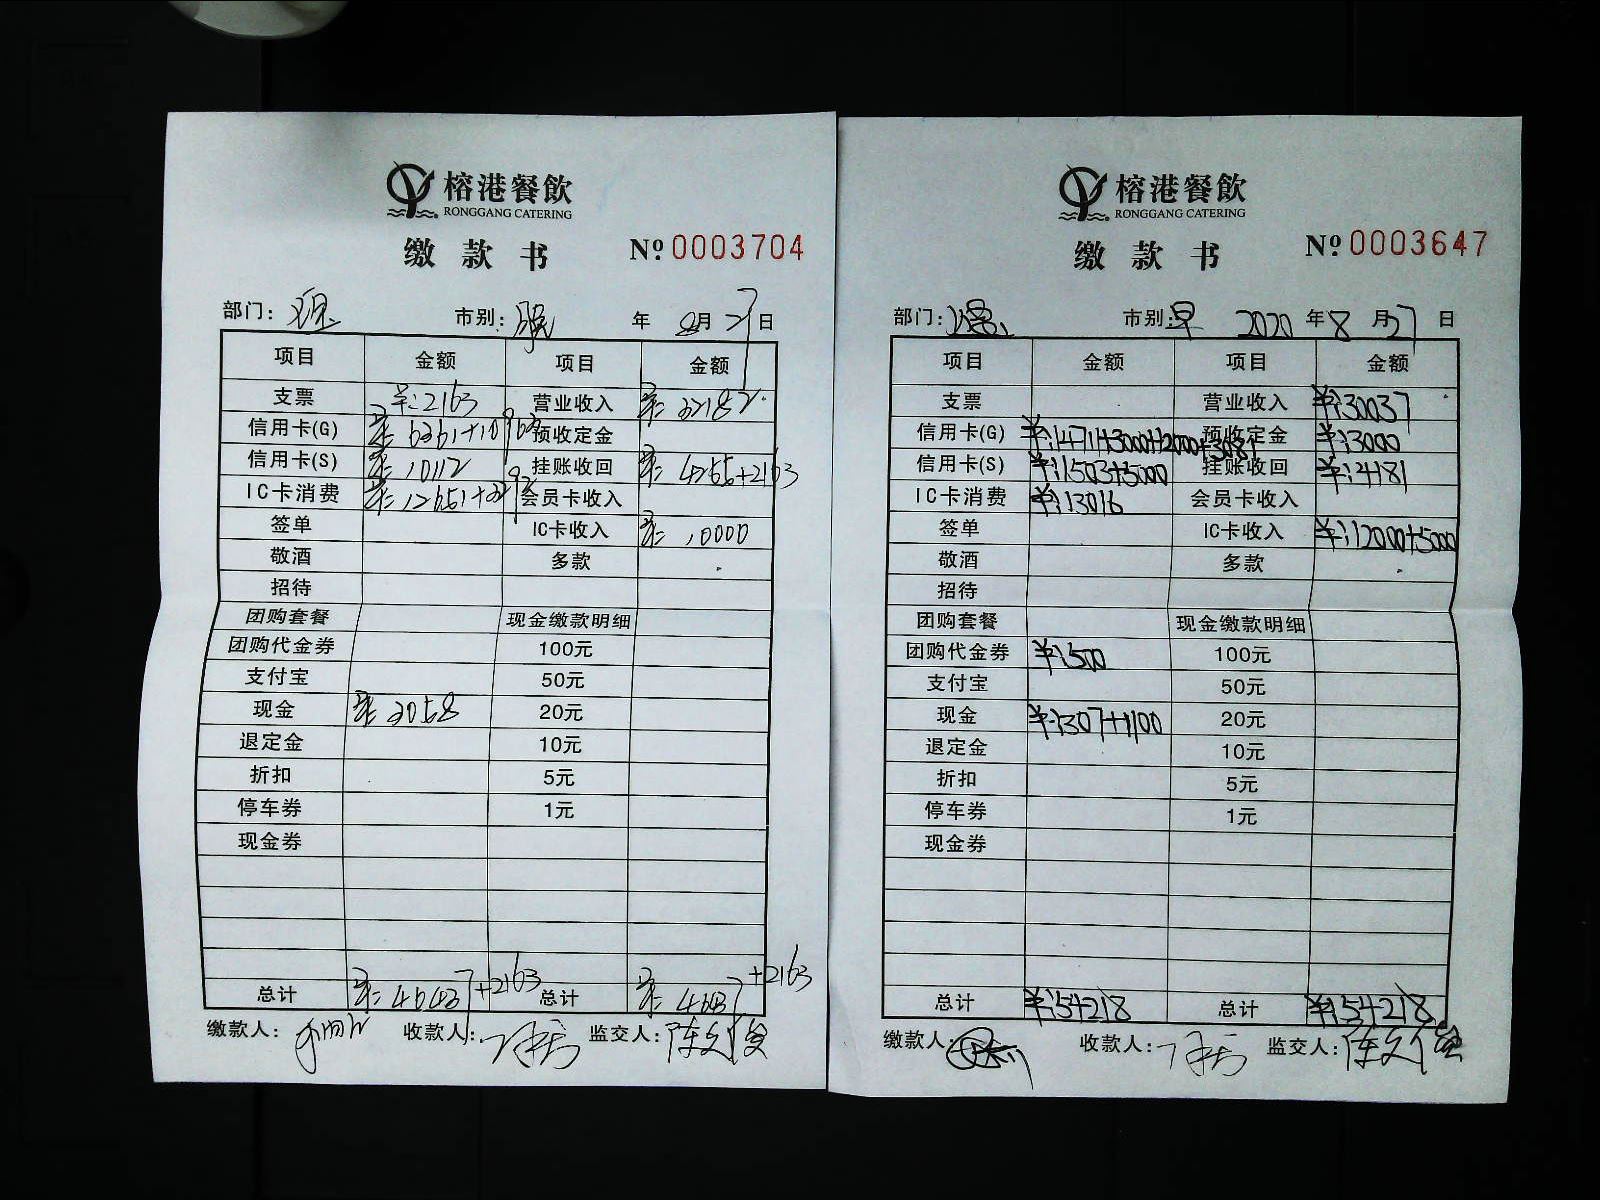 榕港餐飲
RONGGANG CATERING
缴款书 № 0003704
部门: 市别: 年 8月27日
项目 金额 项目 金额
支票 ¥:2163 营业收入 ¥: 32182
信用卡(G) 预收定金
信用卡(S) ¥: 10112 挂账收回 ¥: 4255+2163
IC卡消费 会员卡收入
签单 IC卡收入 ¥: 10000
敬酒 多款
招待
团购套餐 现金缴款明细
团购代金券 100元
支付宝 50元
现金 ¥: 3058 20元
退定金 10元
折扣 5元
停车券 1元
现金券
总计 ¥: 46437+2163 总计 ¥: 46437+2163
缴款人: 收款人: 监交人:
榕港餐飲
RONGGANG CATERING
缴款书 № 0003647
部门: 市别:早 2020年8月27日
项目 金额 项目 金额
支票 营业收入 ¥:30037
信用卡(G) ¥:14711+3000+12000+3081 预收定金 ¥:3000
信用卡(S) ¥:1503+5000 挂账收回 ¥:4181
IC卡消费 ¥:13016 会员卡收入
签单 IC卡收入 ¥:12000+5000
敬酒 多款
招待
团购套餐 现金缴款明细
团购代金券 ¥:500 100元
支付宝 50元
现金 ¥:307+1100 20元
退定金 10元
折扣 5元
停车券 1元
现金券
总计 ¥:54218 总计 ¥:54218
缴款人: 收款人: 监交人: